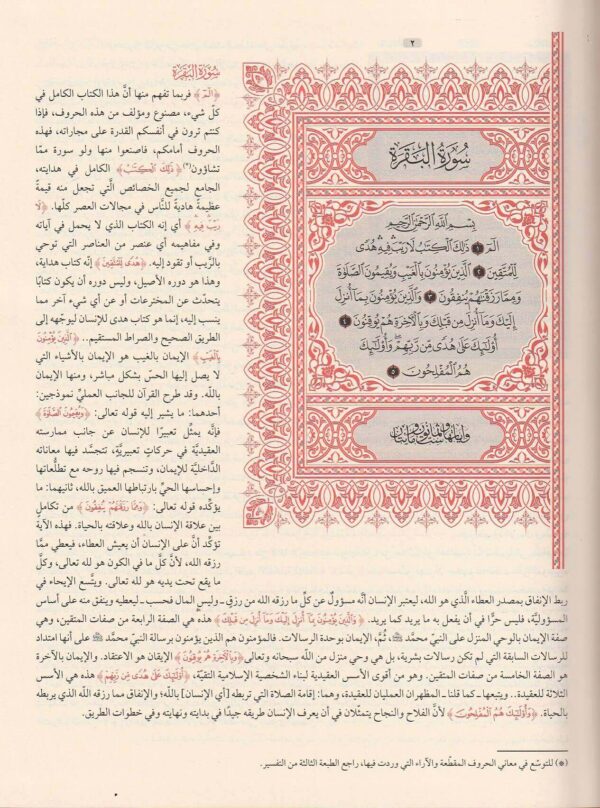 ٢
سُورَةُ البَقَرَة
سُورَةُ البَقَرَة
بِسْمِ اللَّهِ الرَّحْمَنِ الرَّحِيمِ
الٓمٓ ۝١ ذَٰلِكَ الْكِتَابُ لَا رَيْبَ فِيهِ هُدًى
لِلْمُتَّقِينَ ۝٢ الَّذِينَ يُؤْمِنُونَ بِالْغَيْبِ وَيُقِيمُونَ الصَّلَاةَ
وَمِمَّا رَزَقْنَاهُمْ يُنْفِقُونَ ۝٣ وَالَّذِينَ يُؤْمِنُونَ بِمَا أُنْزِلَ
إِلَيْكَ وَمَا أُنْزِلَ مِنْ قَبْلِكَ وَبِالْآخِرَةِ هُمْ يُوقِنُونَ ۝٤
أُولَٰئِكَ عَلَىٰ هُدًى مِنْ رَبِّهِمْ وَأُولَٰئِكَ
هُمُ الْمُفْلِحُونَ ۝٥
﴿الٓمٓ﴾ فربما تفهم منها أنَّ هذا الكتاب الكامل في
كلّ شيء، مصنوع ومؤلف من هذه الحروف، فإذا
كنتم ترون في أنفسكم القدرة على مجاراته، فهذه
الحروف أمامكم، فاصنعوا منها ولو سورة ممّا
تشاؤون(*) ﴿ذَلِكَ الْكِتَبُ﴾ الكامل في هدايته،
الجامع لجميع الخصائص الّتي تجعل منه قيمةً
عظيمةً هاديةً للنَّاس في مجالات العصر كلّها. ﴿لَا
رَيْبَ فِيهِ﴾ أي إنه الكتاب الذي لا يحمل في آياته
وفي مفاهيمه أي عنصر من العناصر التي توحي
بالرَّيب أو تقود إليه. ﴿هُدًى لِلْمُتَّقِينَ﴾ إنَّه كتاب هداية،
وهذا هو دوره الأصيل، وليس دوره أن يكون كتابًا
يتحدّث عن المخترعات أو عن أي شيء آخر مما
ينسب إليه، إنما هو كتاب هدى للإنسان ليوجّهه إلى
الطريق الصحيح والصراط المستقيم.. ﴿الَّذِينَ يُؤْمِنُونَ
بِالْغَيْبِ﴾ الإيمان بالغيب هو الإيمان بالأشياء التي
لا يصل إليها الحسّ بشكل مباشر، ومنها الإيمان
بالله. وقد طرح القرآن للجانب العمليّ نموذجين:
أحدهما: ما يشير إليه قوله تعالى: ﴿وَيُقِيمُونَ الصَّلَوةَ﴾
فإنَّه يمثّل تعبيرًا للإنسان عن جانب ممارسته
العقيديَّة في حركاتٍ تعبيريَّةٍ، تتجسَّد فيها معاناته
الدَّاخليَّة للإيمان، وتنسجم فيها روحه مع تطلُّعاتها
وإحساسها الحيّ بارتباطها العميق بالله، ثانيهما: ما
يؤكّده قوله تعالى: ﴿وَمِمَّا رَزَقْنَهُمْ يُنْفِقُونَ﴾ من تكامل
بين علاقة الإنسان بالله وعلاقته بالحياة. فهذه الآية
تؤكد أنَّ على الإنسان أن يعيش العطاء، فيعطي ممَّا
رزقه الله، لأنَّ كلّ ما في الكون هو لله تعالى، وكلَّ
ما يقع تحت يديه هو لله تعالى. ويتَّسع الإيحاء في
ربط الإنفاق بمصدر العطاء الَّذي هو الله، ليعتبر الإنسان أنَّه مسؤولٌ عن كلِّ ما رزقه الله من رزقٍ ـ وليس المال فحسب ـ ليعطيه وينفق منه على أساس
المسؤوليَّة، فليس حرًّا في أن يفعل به ما يريد كما يريد. ﴿وَالَّذِينَ يُؤْمِنُونَ بِمَا أُنْزِلَ إِلَيْكَ وَمَا أُنْزِلَ مِنْ قَبْلِكَ﴾ هذه هي الصفة الرابعة من صفات المتقين، وهي
صفة الإيمان بالوحي المنزل على النبيّ محمَّد ﷺ، ثُمَّ، الإيمان بوحدة الرسالات. فالمؤمنون هم الذين يؤمنون برسالة النبيّ محمَّد ﷺ على أنها امتداد
للرسالات السابقة التي لم تكن رسالات بشرية، بل هي وحي منزل من الله سبحانه وتعالى ﴿وَبِالْآخِرَةِ هُمْ يُوقِنُونَ﴾ الإيقان هو الاعتقاد. والإيمان بالآخرة
هو الصفة الخامسة من صفات المتقين. وهو من أقوى الأسس العقيدية لبناء الشخصية الإسلامية التقيّة، ﴿أُولَئِكَ عَلَى هُدًى مِنْ رَبِّهِمْ﴾ هذه هي الأسس
الثلاثة للعقيدة.. ويتبعها ـ كما قلنا ـ المظهران العمليان للعقيدة، وهما: إقامة الصلاة التي تربطه [أي الإنسان] بالله؛ والإنفاق مما رزقه الله الذي يربطه
بالحياة. ﴿وَأُولَئِكَ هُمُ الْمُفْلِحُونَ﴾ لأنَّ الفلاح والنجاح يتمثّلان في أن يعرف الإنسان طريقه جيدًا في بدايته ونهايته وفي خطوات الطريق.
(*) للتوسّع في معاني الحروف المقطّعة والآراء التي وردت فيها، راجع الطبعة الثالثة من التفسير.